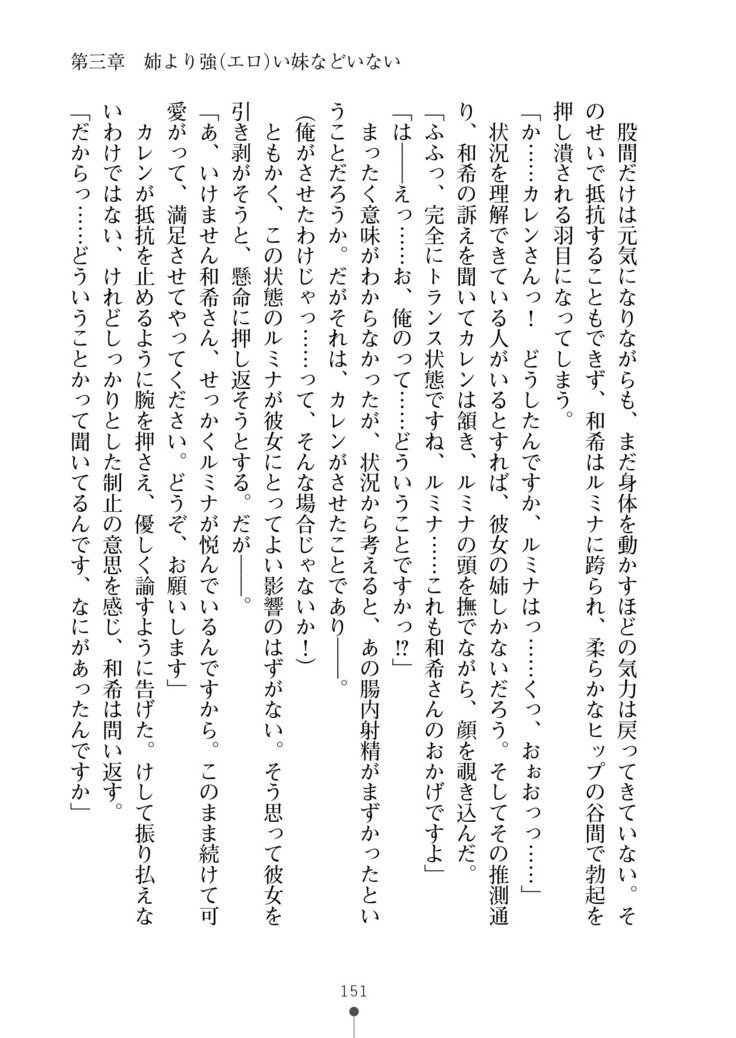 第三章　姉より強(エロ)い妹などいない
　股間だけは元気になりながらも、まだ身体を動かすほどの気力は戻ってきていない。そ
のせいで抵抗することもできず、和希はルミナに跨られ、柔らかなヒップの谷間で勃起を
押し潰される羽目になってしまう。
「か……カレンさんっ！　どうしたんですか、ルミナはっ……くっ、おぉおっっ……」
　状況を理解できている人がいるとすれば、彼女の姉しかないだろう。そしてその推測通
り、和希の訴えを聞いてカレンは頷き、ルミナの頭を撫でながら、顔を覗き込んだ。
「ふふっ、完全にトランス状態ですね、ルミナ……これも和希さんのおかげですよ」
「は――えっ……お、俺のって……どういうことですかっ!?」
　まったく意味がわからなかったが、状況から考えると、あの腸内射精がまずかったとい
うことだろうか。だがそれは、カレンがさせたことであり――。
(俺がさせたわけじゃっ……って、そんな場合じゃないか！)
　ともかく、この状態のルミナが彼女にとってよい影響のはずがない。そう思って彼女を
引き剥がそうと、懸命に押し返そうとする。だが――。
「あ、いけません和希さん、せっかくルミナが悦んでいるんですから。このまま続けて可
愛がって、満足させてやってください。どうぞ、お願いします」
　カレンが抵抗を止めるように腕を押さえ、優しく諭すように告げた。けして振り払えな
いわけではない、けれどしっかりとした制止の意思を感じ、和希は問い返す。
「だからっ……どういうことかって聞いてるんです、なにがあったんですか」
151